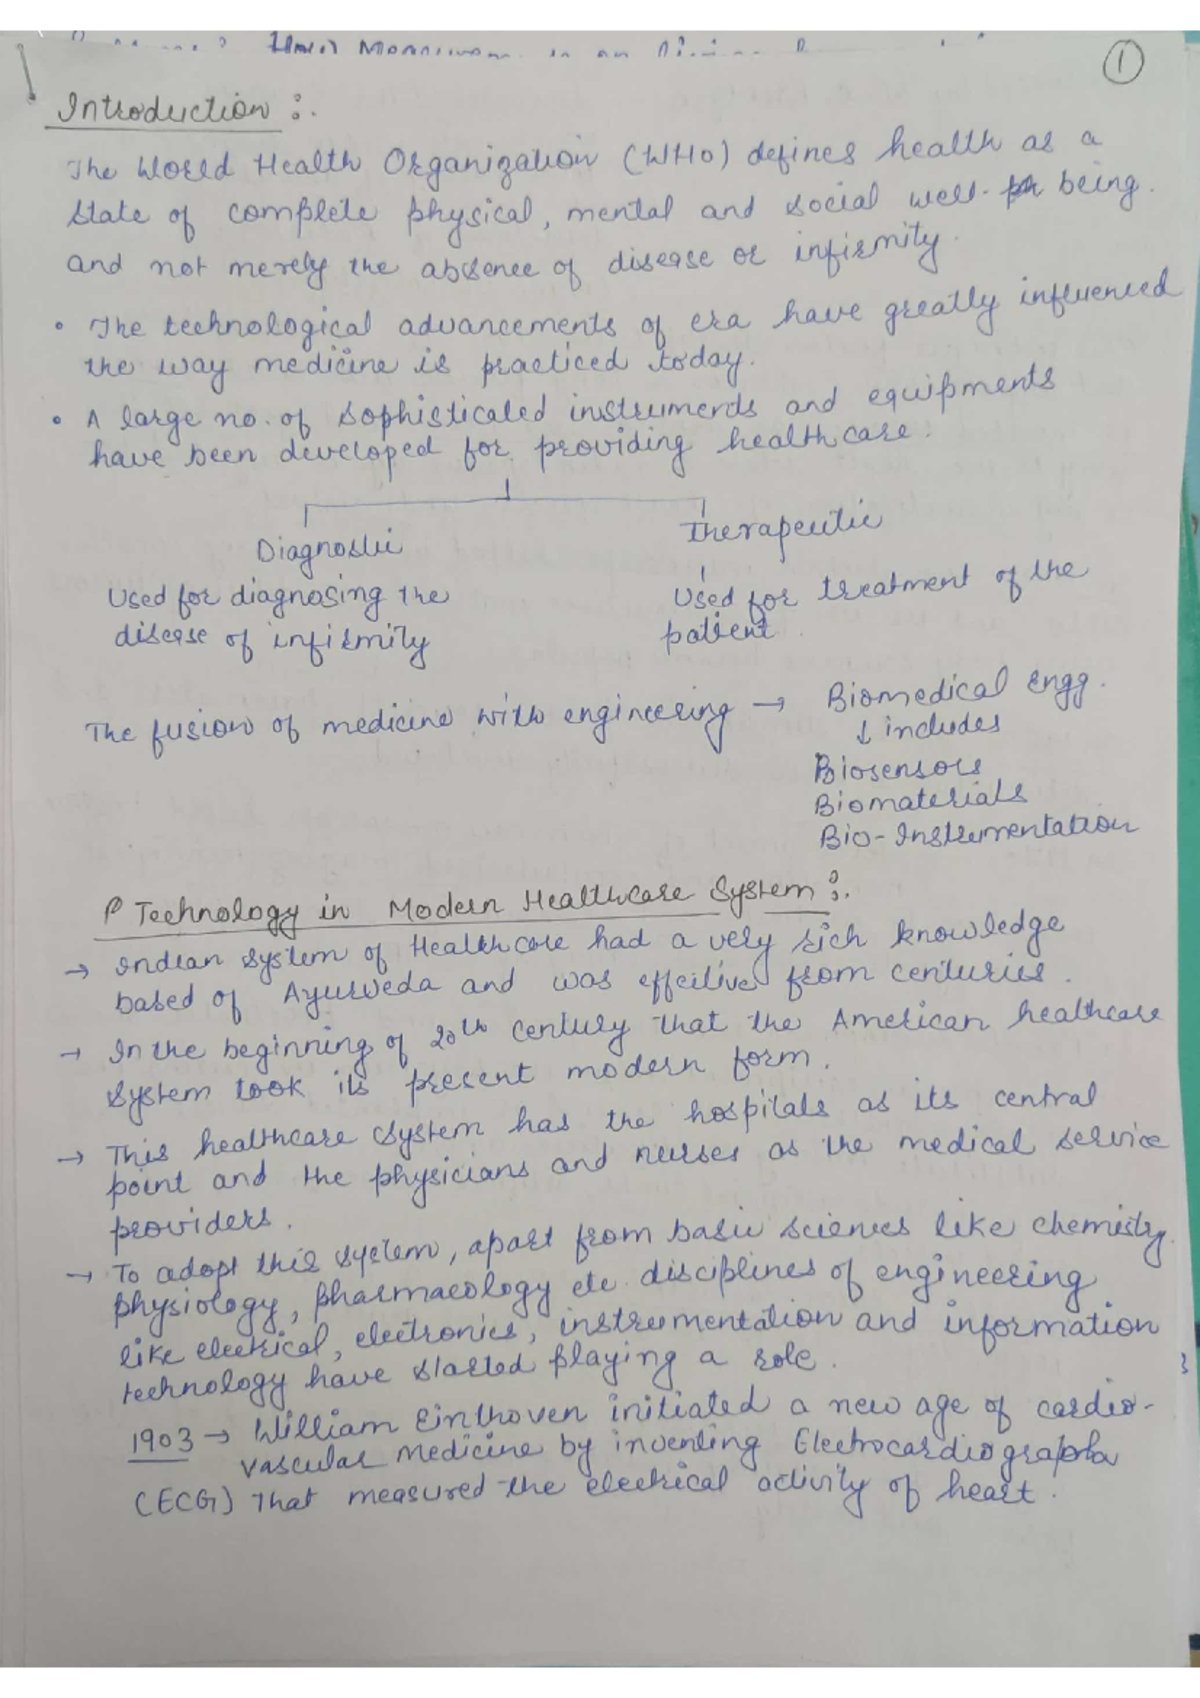 1
Introduction :.
The World Health Organization (WHO) defines health as a
state of complete physical, mental and social well- being.
and not merely the absence of disease or infirmity.
• The technological advancements of era have greatly influenced
the way medicine is practiced today.
• A large no. of sophisticated instruments and equipments
have been developed for providing healthcare.
Diagnostic
Therapeutic
Used for diagnosing the
disease of infirmity
Used for treatment of the
patient
The fusion of medicine with engineering → Biomedical Engg.
↓ includes
Biosensors
Biomaterials
Bio-Instrumentation
Technology in Modern Healthcare System :.
→ Indian System of Healthcare had a very rich knowledge
based of Ayurveda and was effective from centuries.
→ In the beginning of 20th century that the American healthcare
system took its present modern form.
→ This healthcare system has the hospitals as its central
point and the physicians and nurses as the medical service
providers.
→ To adopt this system, apart from basic sciences like chemistry,
physiology, pharmacology etc. disciplines of engineering
like electrical, electronics, instrumentation and information
technology have started playing a role.
1903 → William Einthoven initiated a new age of cardio-
vascular medicine by inventing
(ECG) that measured the electrical activity of heart.